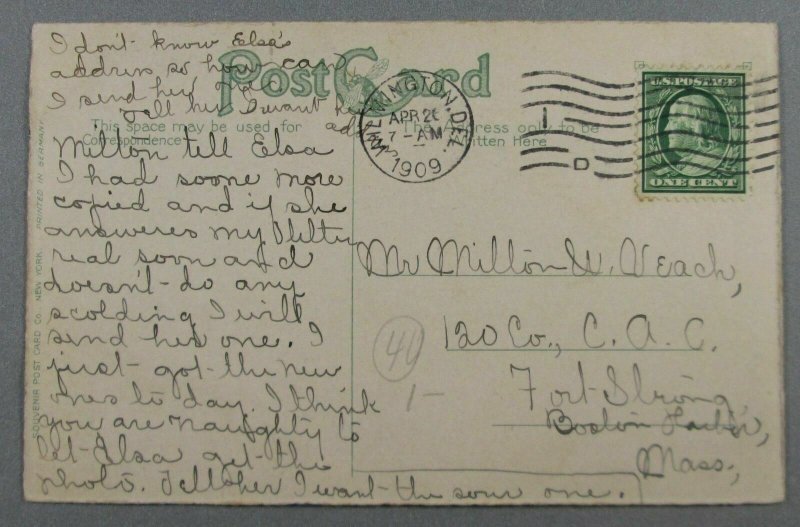 I don't know Elsa's
address so how can
I send her one
Tell her I want her
ad
Post Card
This space may be used for
Correspondence
This address only to be
Written Here
WILMINGTON, DEL.
APR 26
7-AM
1909
1
D
U.S. POSTAGE
ONE CENT
Milton tell Elsa
I had some more
copied and if she
answeres my letter
real soon and
doesn't do any
scolding I will
send her one. I
just got the new
ones to day. I think
you are naughty to
let Elsa get the
photo. Tell her I want the sour one.
Mr Milton W. Veach,
120 Co., C. A. C.
Fort Strong,
Boston Harbor,
Mass.,
1-
SOUVENIR POST CARD CO., NEW YORK. PRINTED IN GERMANY